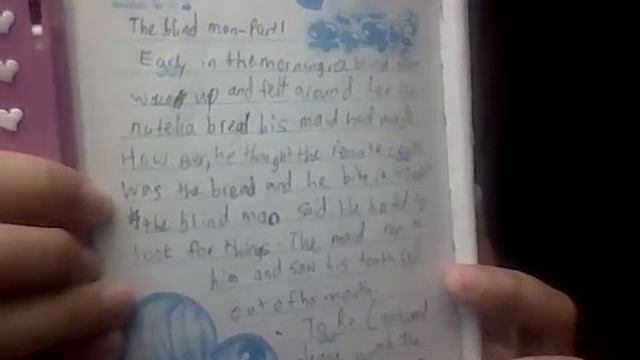 The blind man-Part 1
Early in the morning, a blind man
woke up and felt around for the
nutella bread his maid had made
How ever, he thought the remote
was the bread and he bite it
the blind man said He hated to
look for things. The maid ran to
him and saw his tooth fell
out of his mouth.
To Be Continued
the